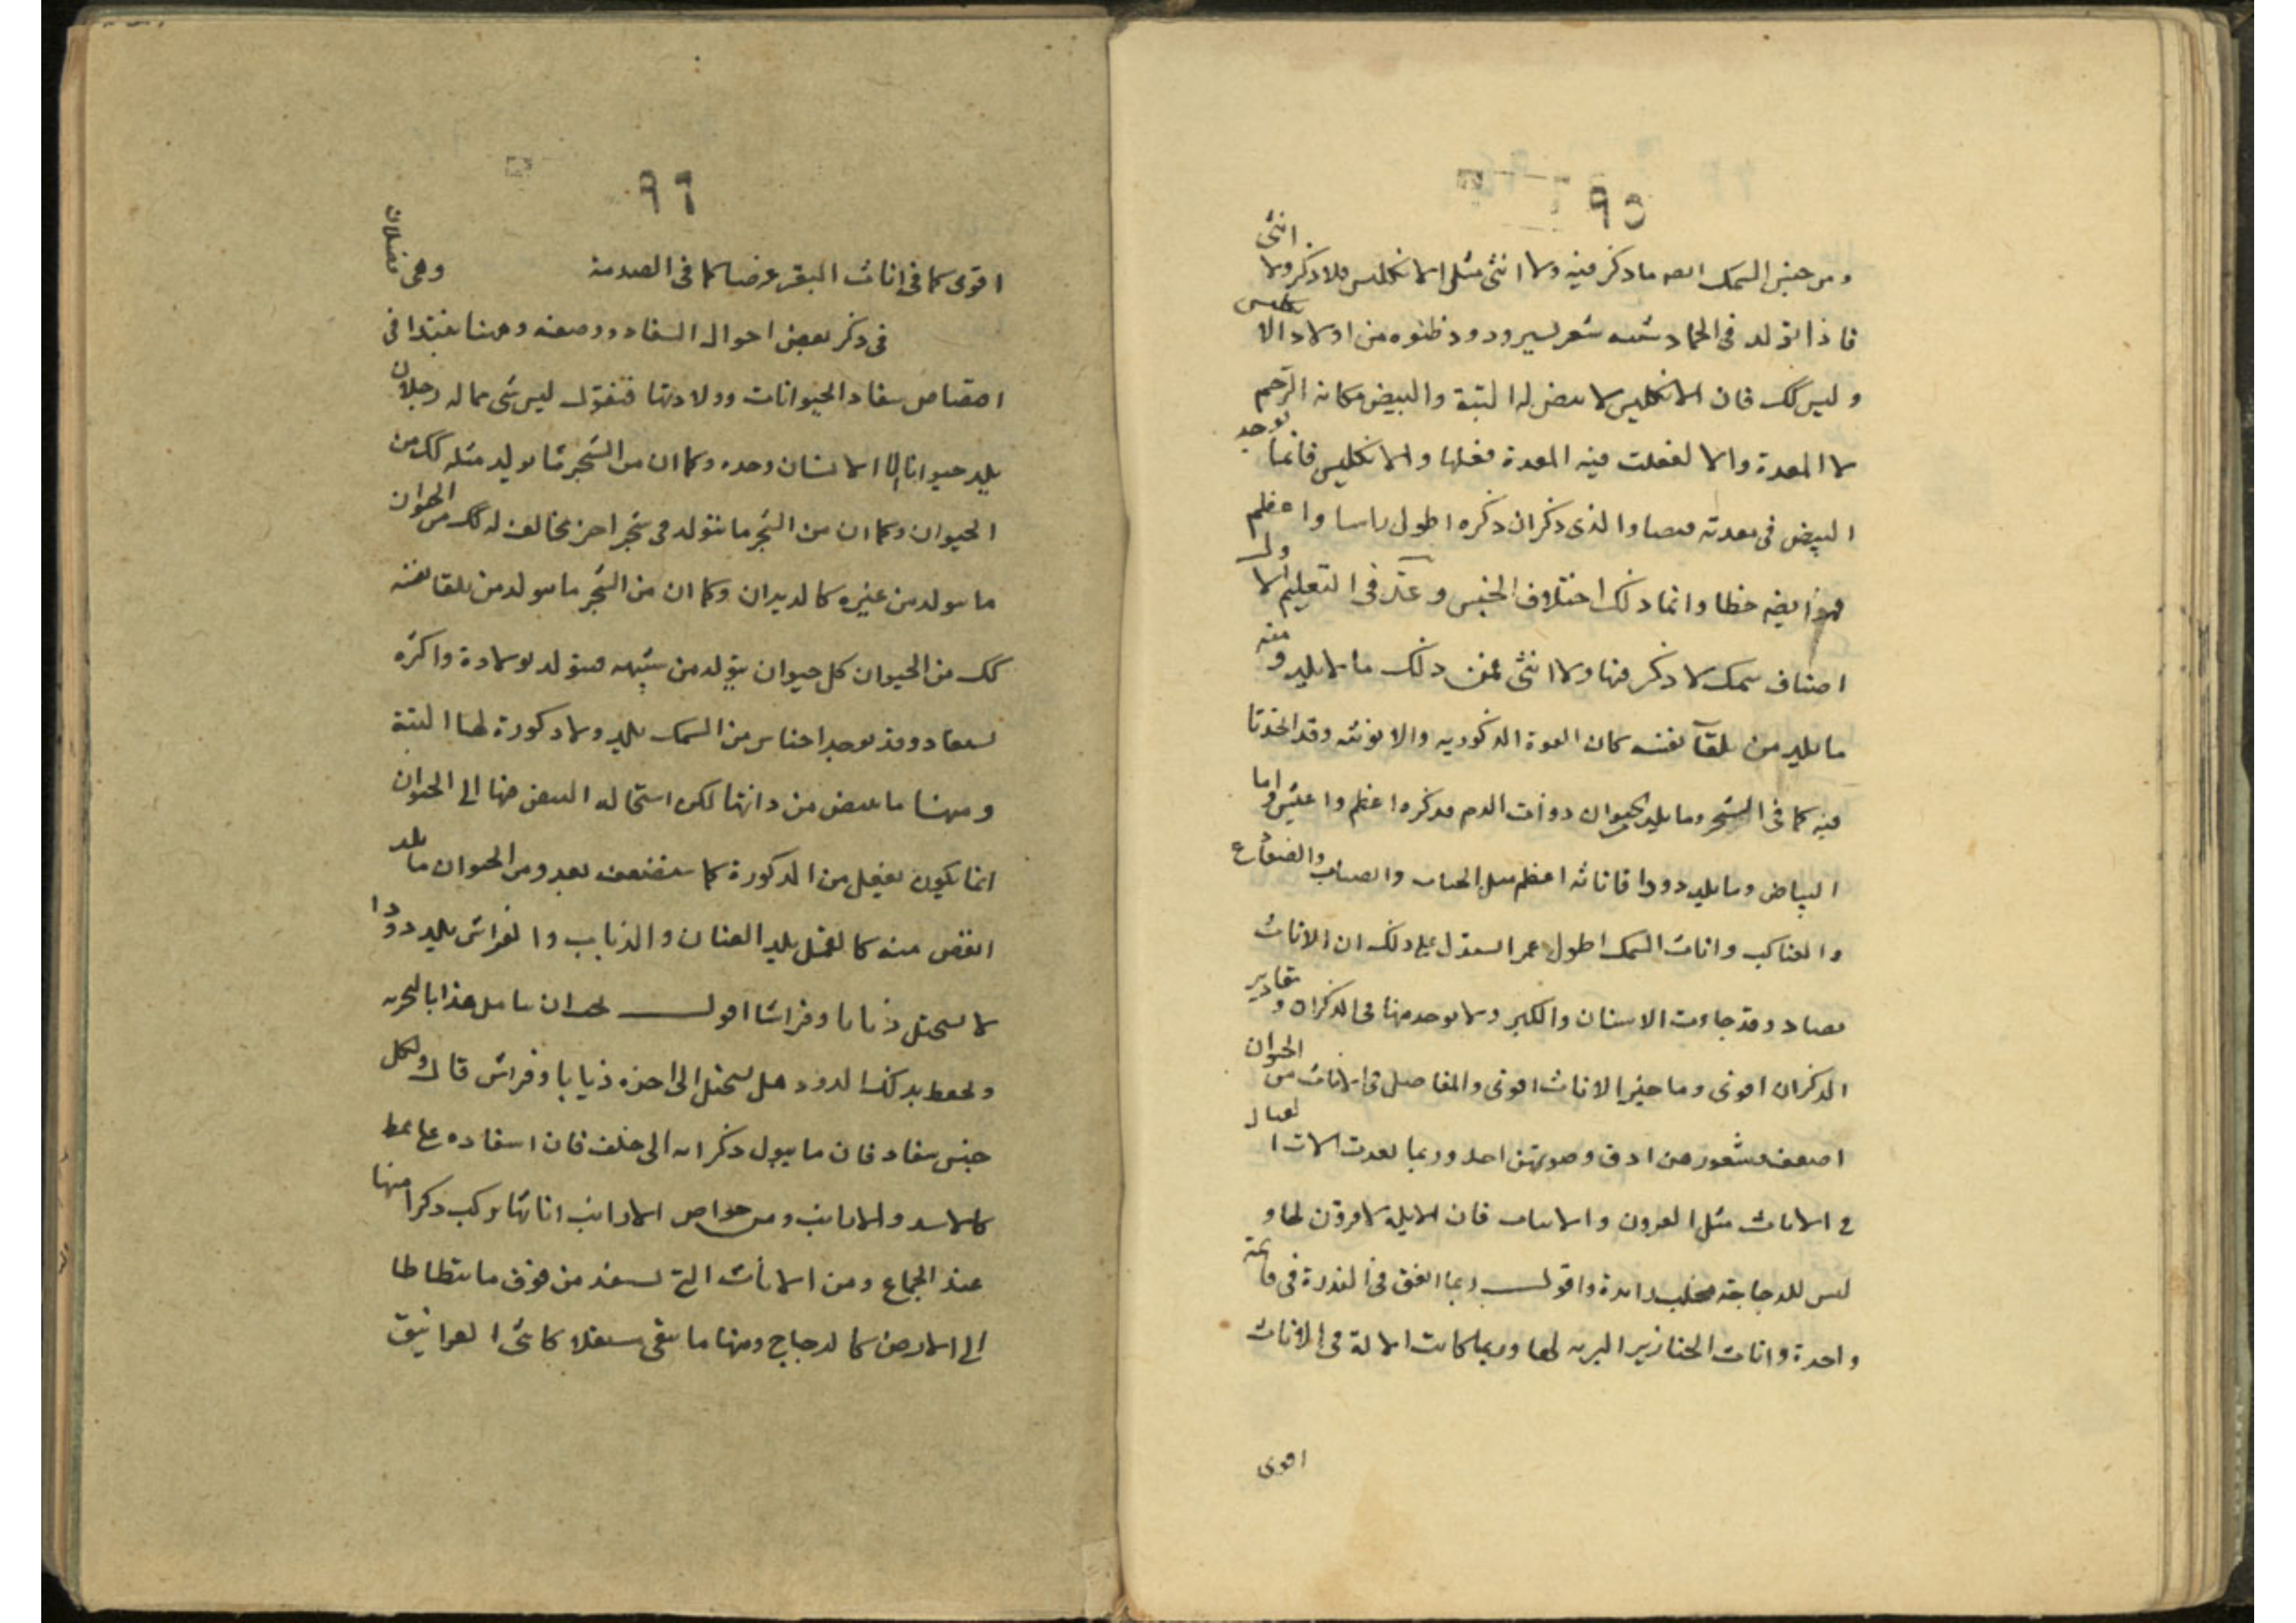 ٩٥
ومن جنس السمك ايضه ما ذكر فيه ولا انثى مثل الانكليس فلا ذكر ولا انثى
فاذا تولد فى الحماد شبه شعر يسير ودود ظنوه من اولاد الانكليس
وليس كك فان الانكليس لا بيض له البتة والبيض مكانه الرحم
لا المعدة والا لفعلت فيه المعدة فعلها والانكليس فانما يوجد
البيض فى معدته والذى ذكر ان ذكره اطول راسا واعظم
فهو ايضه خطا وانما ذلك اختلاف الجنس وعد فى التعليم الاول
اصناف سمك لا ذكر فيها ولا انثى فمن ذلك ما لا يلد ومنه
ما يلد من تلقآ نفسه كان القوة الذكوريه والانوثيه وقد اتحدتا
فيه كما فى الشجر وما يلد الحيوان ذوات الدم فذكره اعظم واعيش واما
البياض وما يلد دودا فاناثه اعظم مثل الحيات والضفادع
والعناكب واناث السمك اطول عمرا يستدل على ذلك ان الاناث
تصاد وقد جاوزت الاسنان والكبر ولا يوجد منها فى الذكران ومقادير
الذكران اقوى وما خير الاناث اقوى والمفاصل فى الاناث من الحيوان
اضعف وشعورهن ادق وصوتهن احد وربما لعدت الات القتال
فى الاناث مثل القرون والانياب فان الايلة لا قرون لها و
ليس للدجاجة مخلب زايدة واقول ربما اتفق فى الندرة فى قايمة
واحدة واناث الخنازير البريه لها وربما كانت الالة فى الاناث
اقوى
٩٦
اقوى كما فى اناث البقر عرضا كما فى الصدمة وهى فصلان
فى ذكر بعض احوال السفاد ووصفه وههنا نبتدا فى
اقتصاص سفاد الحيوانات وولادتها فنقول ليس شى مما له رجلان
يلد حيوانا الا الانسان وحده وكما ان من الشجر ما يولد مثله كك من
الحيوان وكما ان من الشجر ما يتولد فى شجر اخر مخالف له كك من الحيوان
ما يتولد من غيره كالديدان وكما ان من الشجر ما يتولد من تلقا نفسه
كك من الحيوان كل حيوان يتولد من شبهه فيتولد بولادة واكثره
بسفاد وقد يوجد اجناس من السمك يلد ولا ذكورة لها البتة
ومنها ما يبيض من ذاتها لكن استحاله البيض منها الى الحيوان
انما يكون بفعل من الذكورة كما ستضعه بعد ومن الحيوان ما يلد
انقص منه كالقمل يلد الصئبان والذباب والفراش يلد دودا
لا يستحيل ذبابا وفراشا اقول يجب ان يتامل هذا بالتجربه
ويحفظ بذلك الدود هل يستحيل الى اخره ذبابا وفراش قال ولكل
جنس سفاد فان ما يبول ذكرانه الى خلف فان اسفاده على نمط
كالاسد والارانب ومن خواص الارانب اناثها يركب ذكرانها
عند الجماع ومن الاناث التى تسفد من فوق ما يتطاطا
الى الارض كالدجاج ومنها ما يبقى مستقلا كانثى الغرانيق